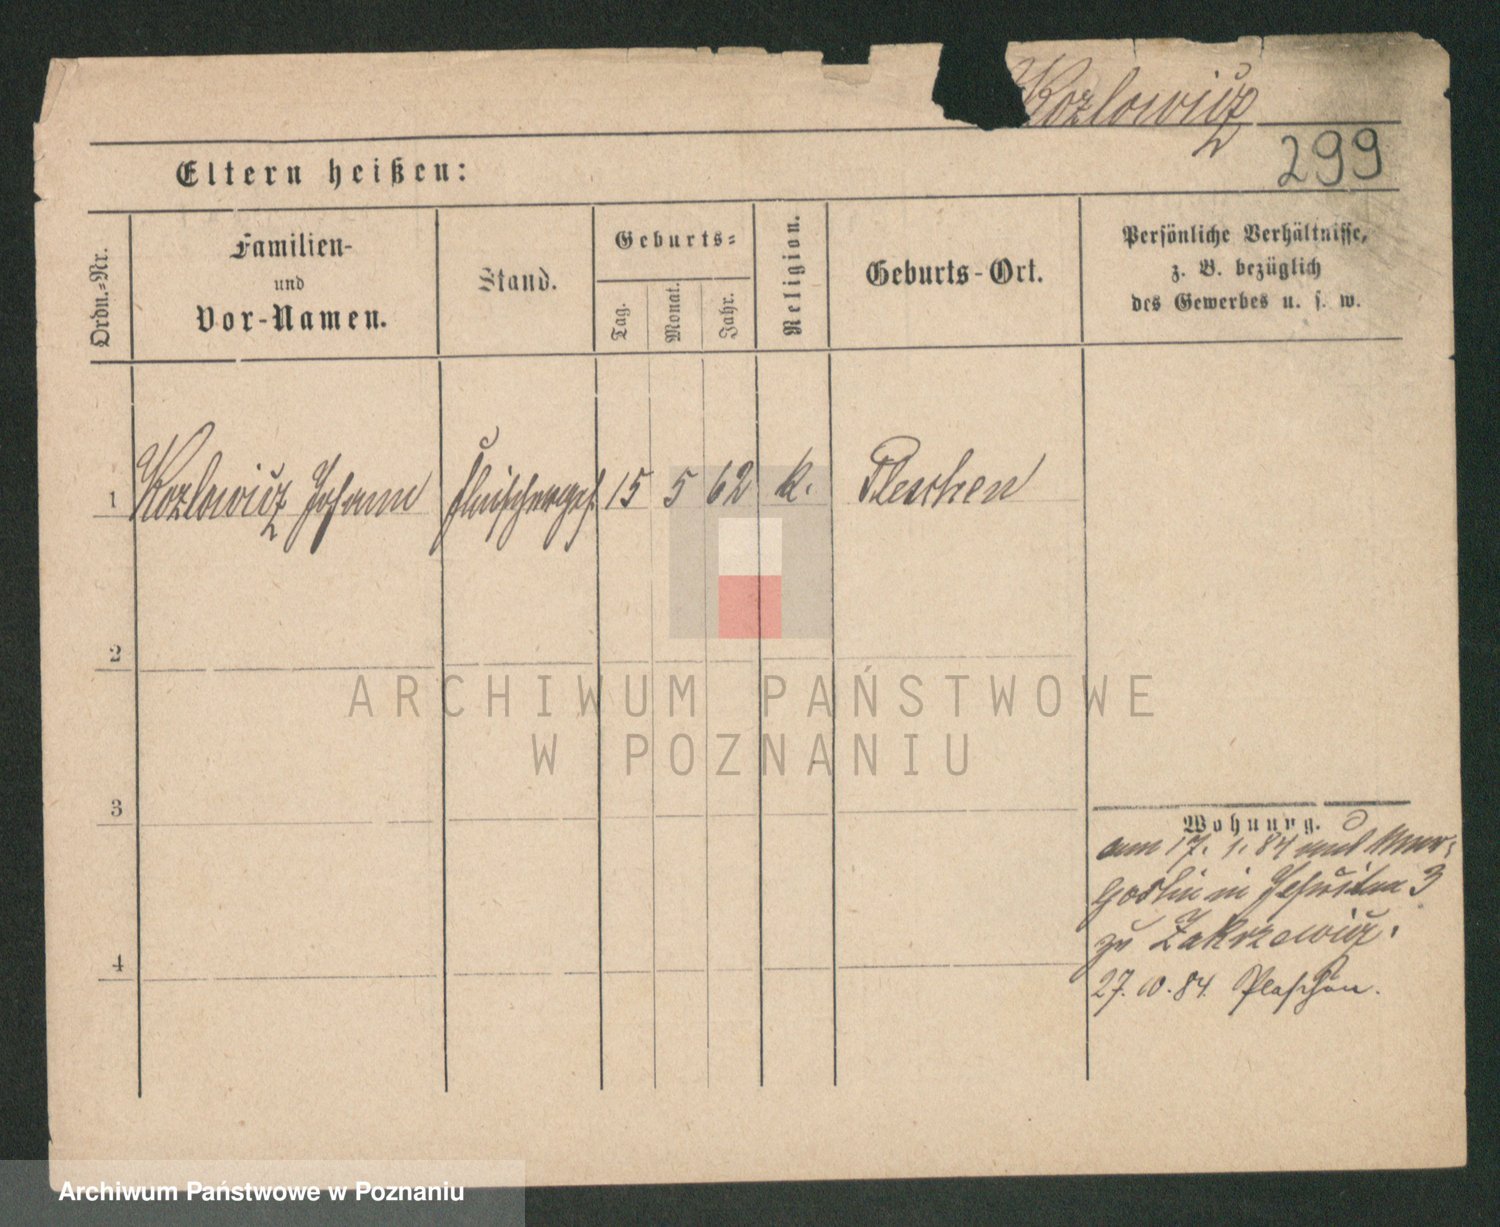 Kozlowicz
299
Eltern heißen:
Ordn.-Nr.
Familien-
und
Vor-Namen.
Stand.
Geburts-
Tag.
Monat.
Jahr.
Religion.
Geburts-Ort.
Persönliche Verhältnisse,
z. B. bezüglich
des Gewerbes u. s. w.
1 Kozlowicz Johann Fleischerges. 15 5 62 k. Pleschen
2
ARCHIWUM PAŃSTWOWE
W POZNANIU
3
Wohnung.
am 17. 1. 84 aus Mur.
Goslin in Jesuiten 3
zu Zakrzewicz.
4
27. 10. 84. Pleschen.
Archiwum Państwowe w Poznaniu